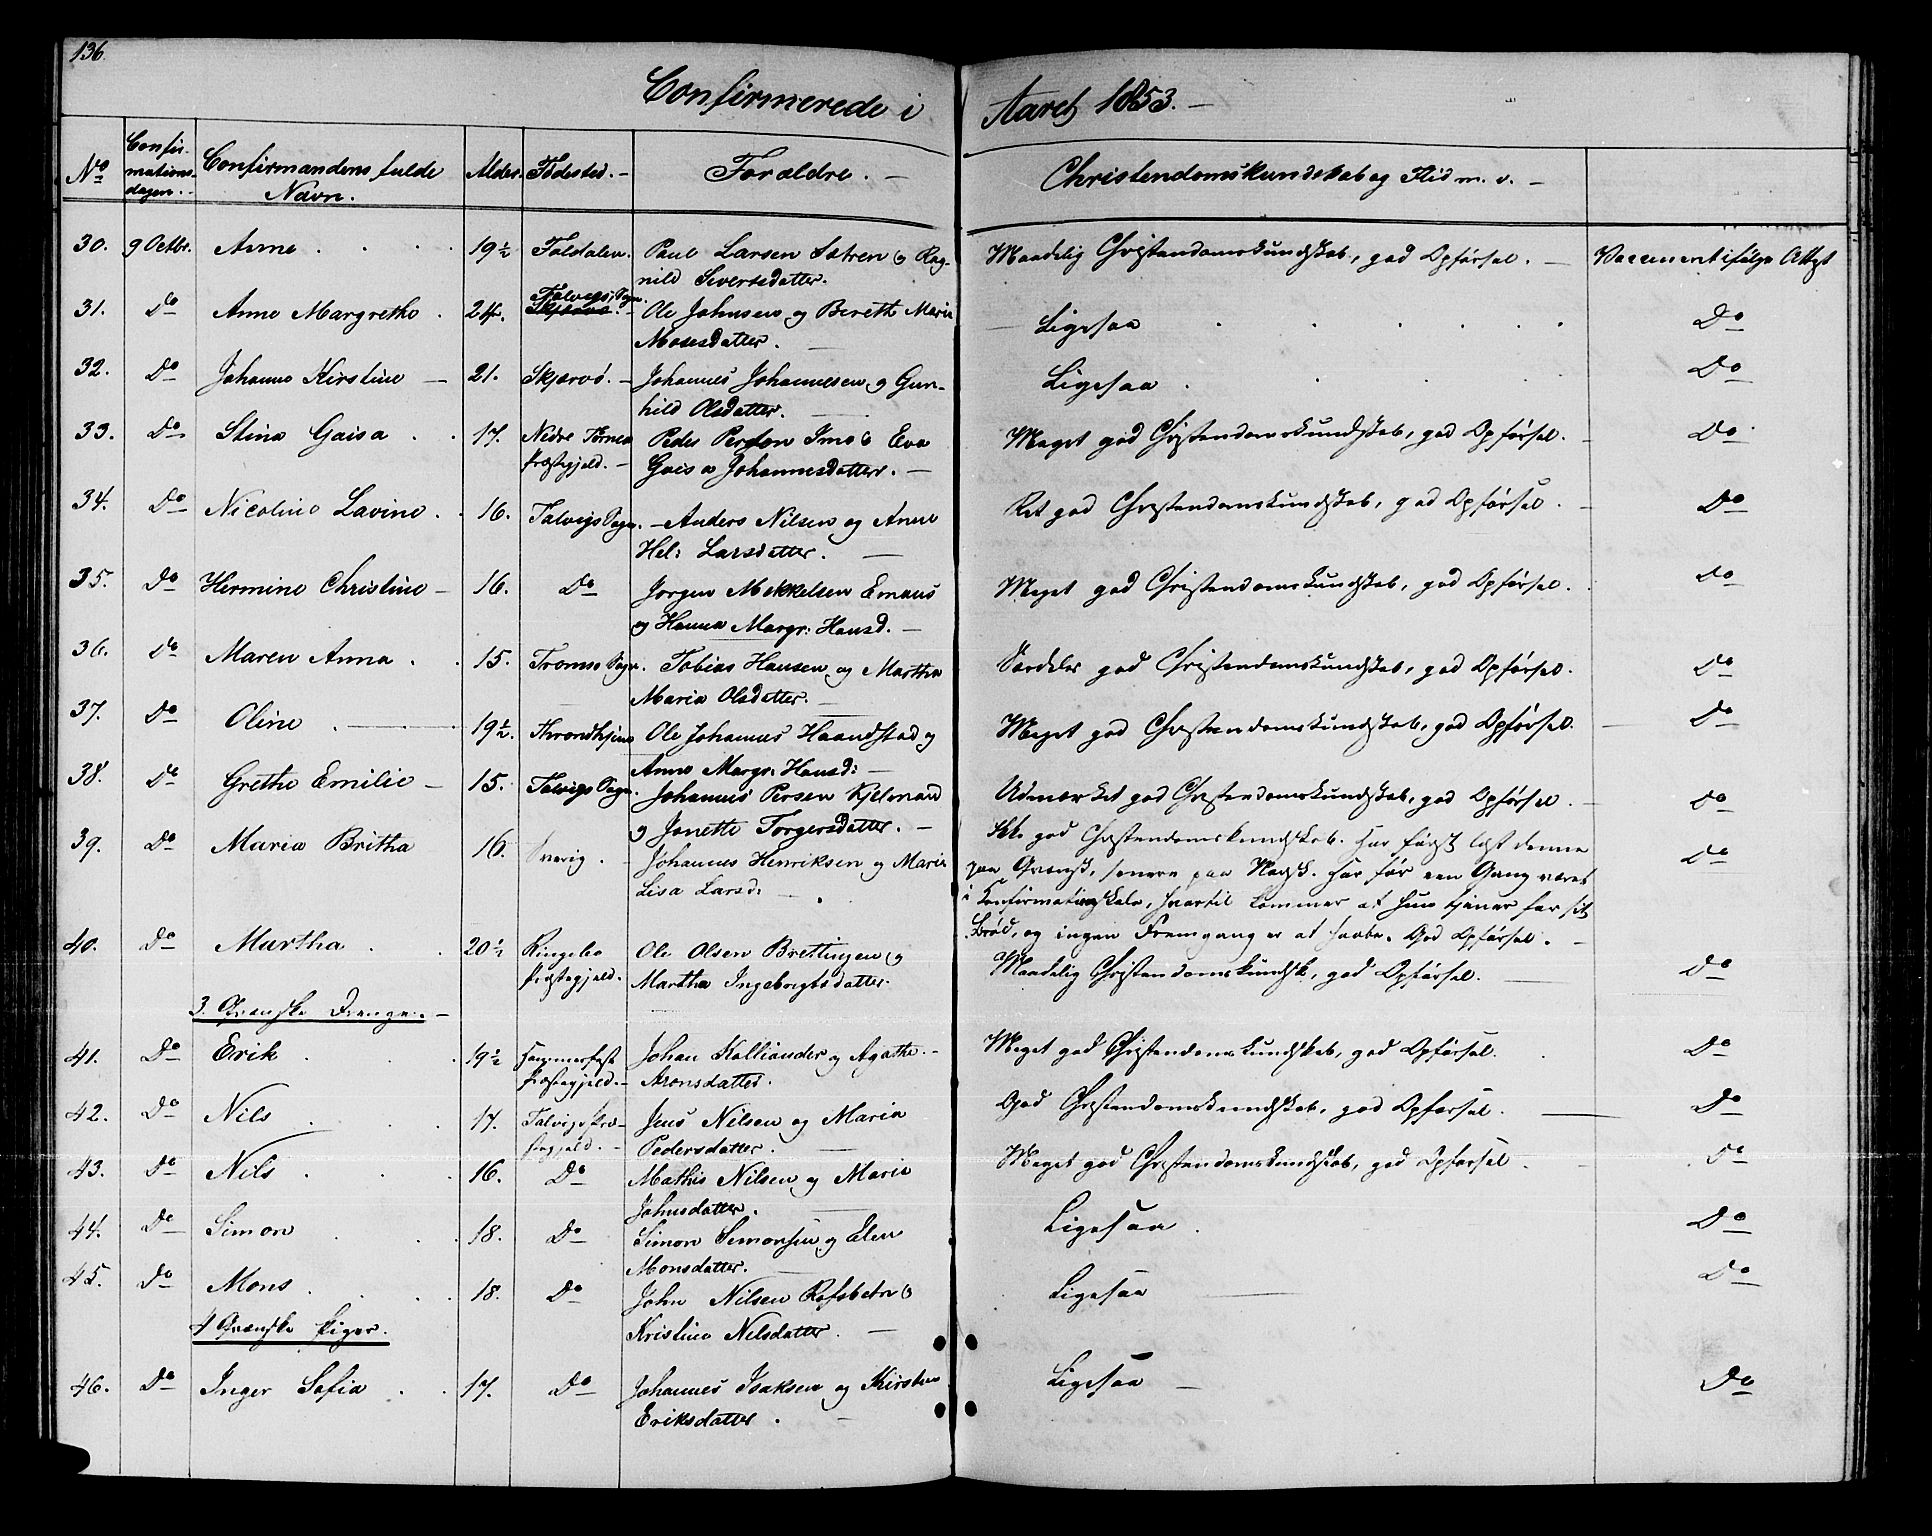 136.
Confirmerede i Aaret 1853. –
No Confirmationsdagen. – Confirmandens fulde Navn. Alder. Fødested. – Forældre. – Christendomskundskab og Flid m. v. –
30. 9 Octbr. Anne 19½ Foldalen. Paul Larsen Sætren og Rag- Maadelig Christendomskundskab, god Opførsel. – Vaccineret ifølge Attest
nild Siversdatter.
31. Do Anne Margrethe 24. Talvigs Sogn. Ole Johnsen og Bereth Maria Ligesaa Do
Skjærvø. Mosesdatter.
32. Do Johanne Kirstine – 21. Skjærvø. – Johannes Johannesen og Gun- Ligesaa Do
hild Olsdatter.
33. Do Stina Gaisa 17. Nedre Torneå Peder Person Imo og Eva Meget god Christendomskundskab, god Opførsel. – Do
Præstegjeld. – Gaisa Johannesdatter. –
34. Do Nicoline Lavine 16. Talvigs Sogn. – Anders Nilsen og Anne Ret god Christendomskundskab, god Opførsel. – Do
Hel: Larsdatter. –
35. Do Hermine Christine – 16. Do Jørgen Mekkelsen Emaus Meget god Christendomskundskab, god Opførsel. Do
og Hanna Margr: Hansd. –
36. Do Maren Anna 15. Tromsø Sogn. Tobias Hansen og Martha Særdeles god Christendomskundskab, god Opførsel. Do
Maria Olsdatter. –
37. Do Oline 19½. Throndhjem Ole Johannes Haandstad og Meget god Christendomskundskab, god Opførsel. Do
Anne Margr: Hansd: –
38. Do Grethe Emilie – 15. Talvigs Sogn. Johannes Persen Kjelmand Udmærket god Christendomskundskab, god Opførsel. Do
og Janette Torgersdatter. –
39. Do Maria Britha 16. Sverig. – Johannes Henriksen og Maria Ikke god Christendomskundskab. Har først læst denne Do
Lisa Larsd: – paa Qvænsk, senere paa Norsk. Har før een Gang været
i Confirmationskole, hvortil kommer at hun tjener for sit
Brød, og ingen Fremgang er at haabe. God Opførsel. –
40. Do Martha 20½ Ringebo Ole Olsen Brettingen og Maadelig Christendomskundsk, god Opførsel. Do
Præstegjeld. Martha Ingebrigtsdatter.
3. Qvænske Drenge. –
41. Do Erik 19½ Hammerfest Johan Kalliander og Agathe Meget god Christendomskundskab, god Opførsel. Do
Præstegjeld. – Aronsdatter.
42. Do Nils 17. Talvigs Præ- Jens Nilsen og Maria God Christendomskundskab, god Opførsel. Do
stegjeld. – Pedersdatter.
43. Do Nils 16. Do Mathis Nilsen og Marie Meget god Christendomskundskab, god Opførsel. Do
Johnsdatter.
44. Do Simon 18. Do Simon Simonsen og Elen Ligesaa Do
Monsdatter.
45. Do Mons 18. Do John Nilsen Rafsbotn og Ligesaa Do
Kristine Nilsdatter. –
4 Qvænske Piger.
46. Do Inger Sofia 17. Do Johannes Isaksen og Kirsten Ligesaa – Do
Eriksdatter.